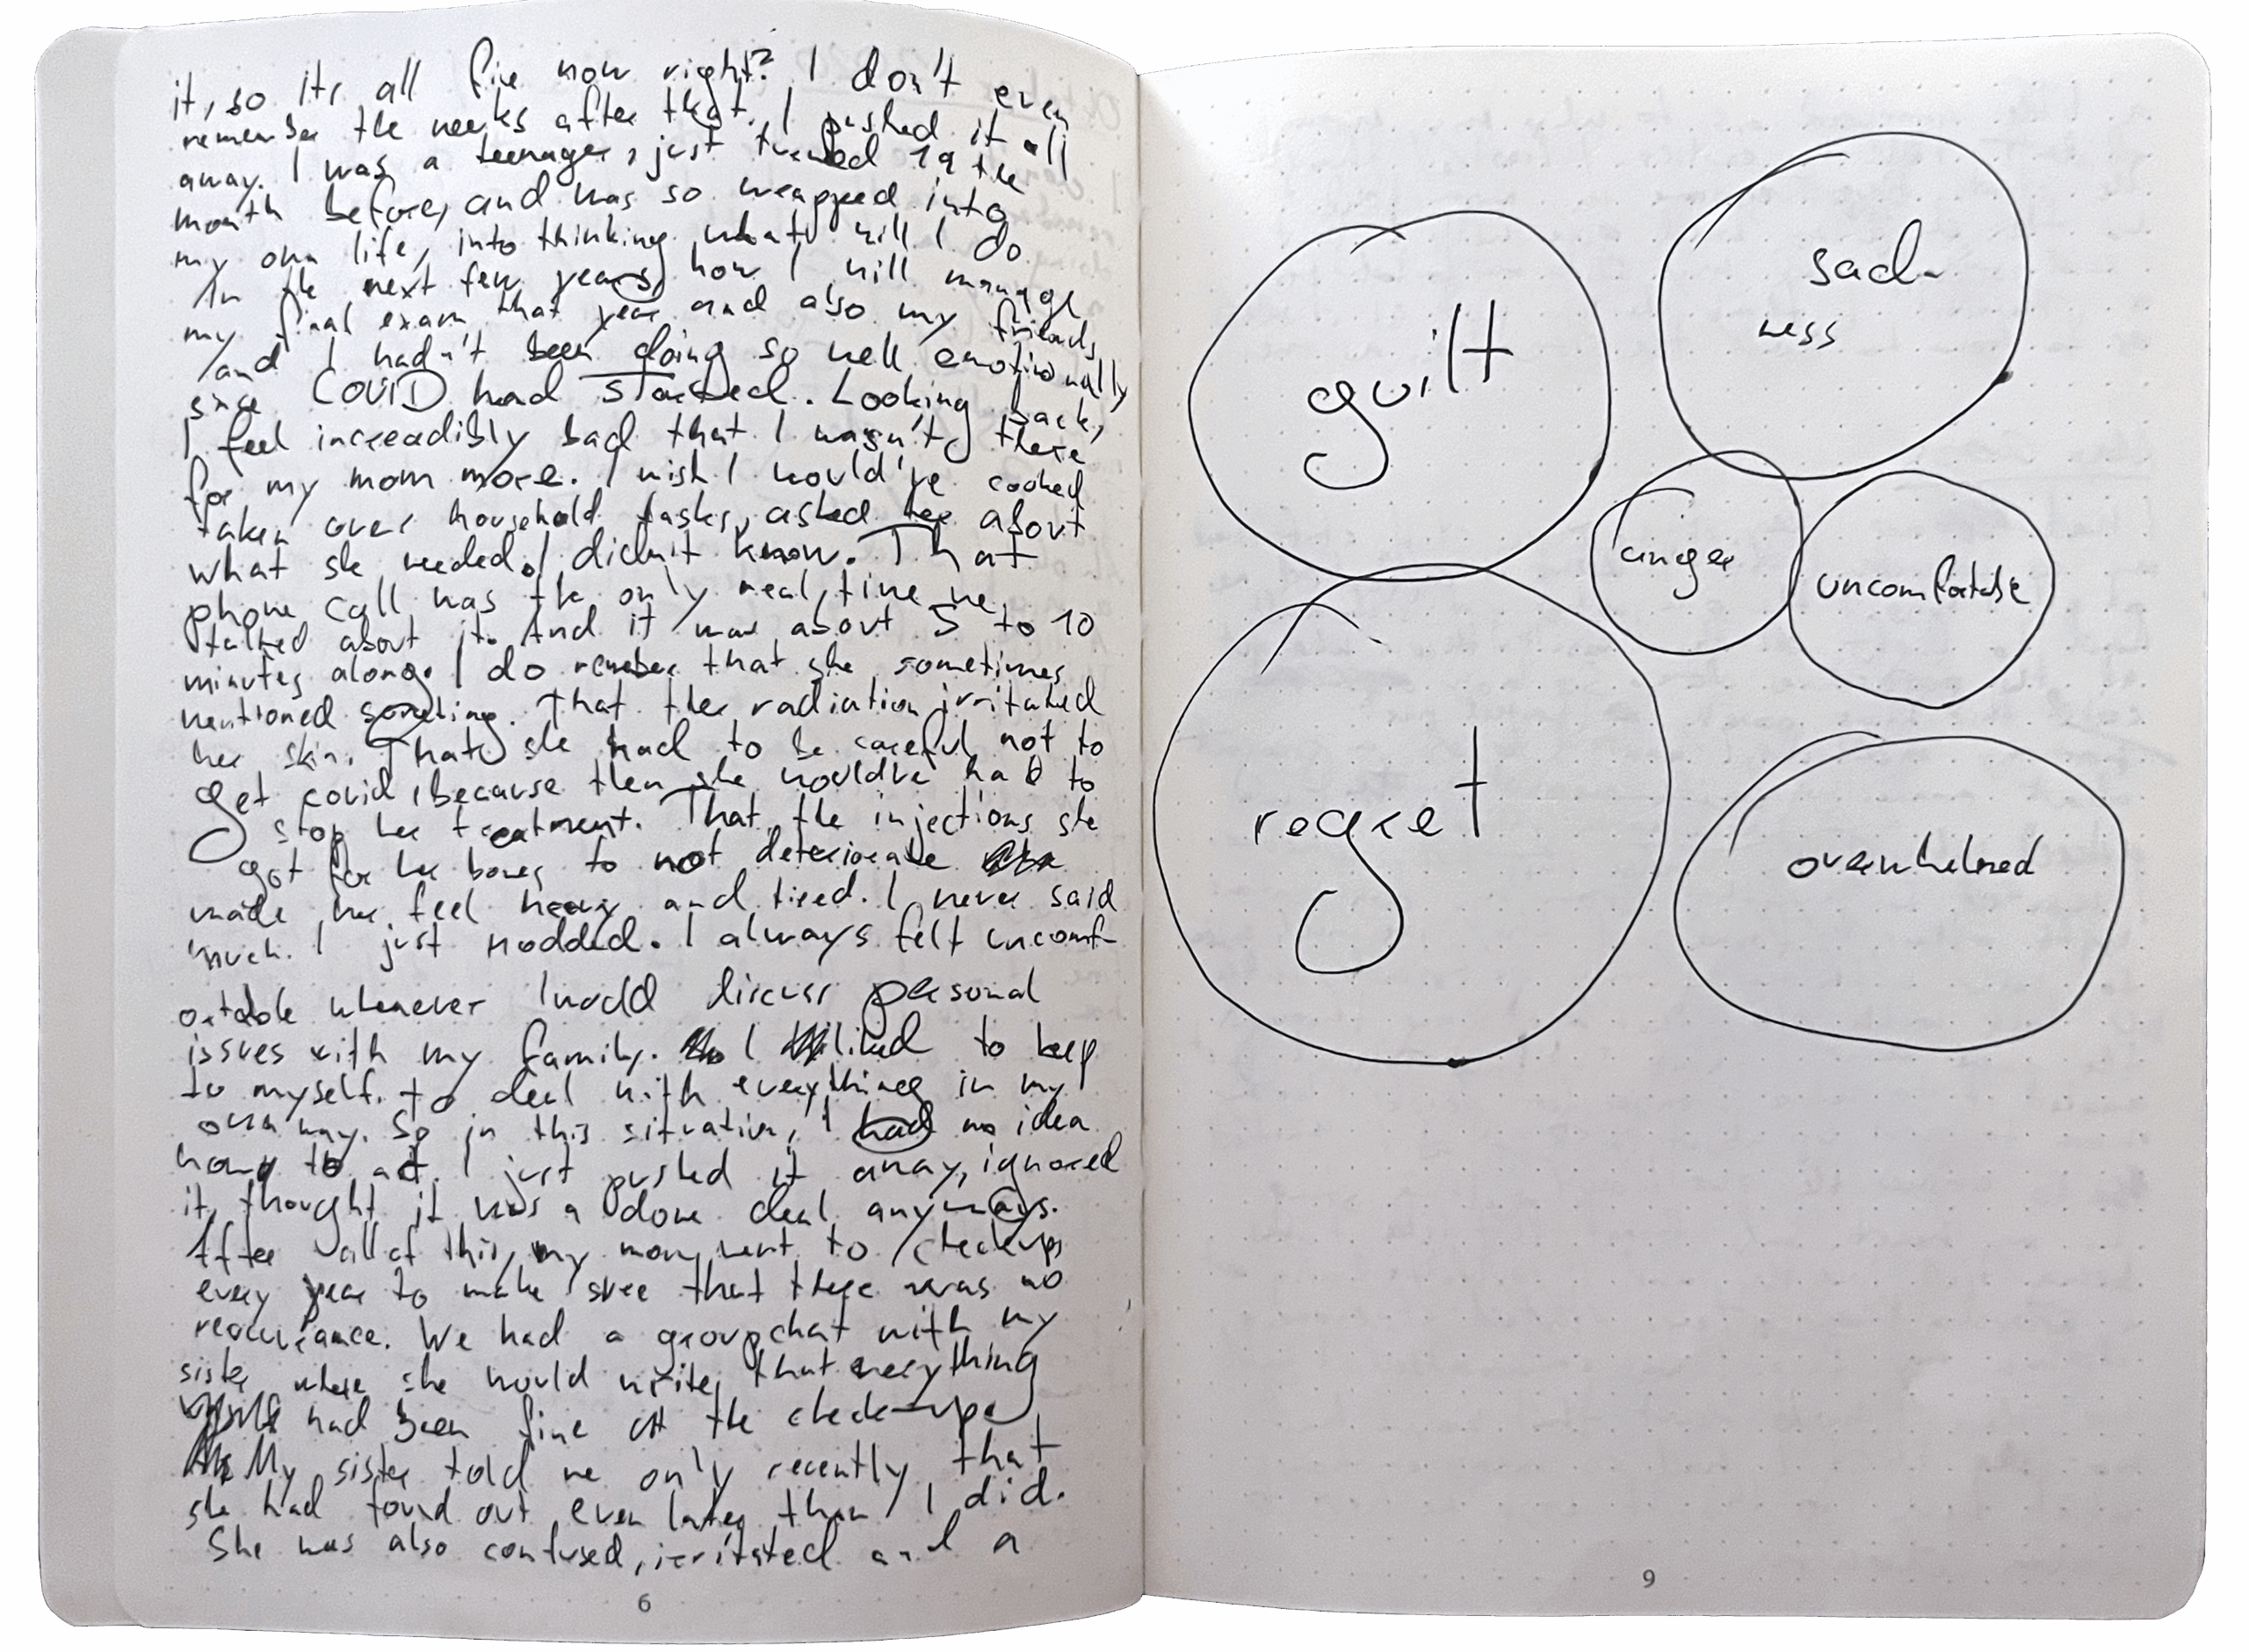 it, so its all fine now right? I don't even
remember the weeks after that. I pushed it all
away. I was a teenager, just turned 19 the
month before, and was so wrapped into
my own life, into thinking what will I do
in the next few years, how I will manage
my final exam that year and also my friends
and I hadn't been doing so well emotionally
since COVID had started. Looking back,
I feel increadibly bad that I wasn't there
for my mom more. I wish I would've cooked
taken over household tasks, asked her about
what she needed. I didn't know. That
phone call was the only real time we
talked about it. And it was about 5 to 10
minutes along. I do remeber that she sometimes
mentioned something. That the radiation irritated
her skin. That she had to be careful not to
get covid, because then she wouldve had to
stop her treatment. That the injections she
got for her bones to not deteriorate
made her feel heavy and tired. I never said
much. I just nodded. I always felt uncomf-
ortable whenever I would discuss personal
issues with my family. I liked to keep
to myself. to deal with everything in my
own way. So in this situation, I had no idea
how to act. I just pushed it away, ignored
it, thought it was a done deal anyways.
After all of this, my mom went to checkups
every year to make sure that there was no
reccurance. We had a groupchat with my
sister where she would write, that everything
had been fine at the check-ups
My sister told me only recently that
she had found out even later than I did.
She was also confused, irritated and a
6
guilt
sad-
ness
anger
uncomfortable
regret
overwhelmed
9